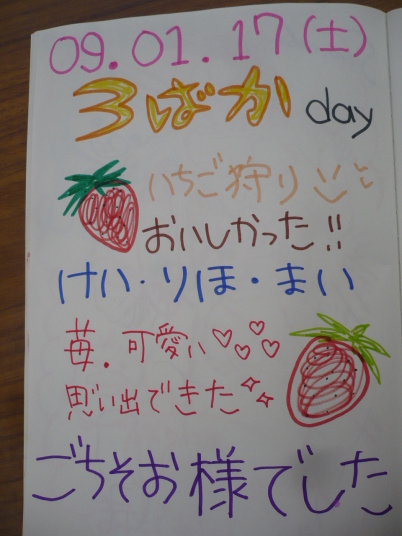 09.01.17(土)
3ばか day
いちご狩り
おいしかった!!
けい・りほ・まい
苺.可愛い♡♡♡♡
思い出できた
ごちそお様でした